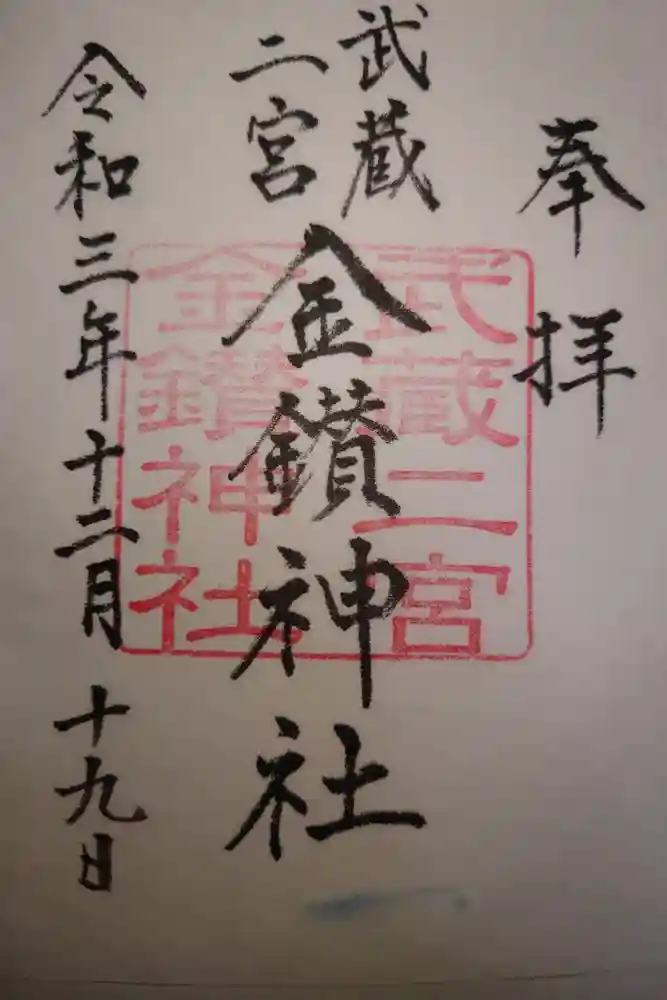 奉拝
武蔵
二宮
金鑚神社
令和三年十二月十九日
武蔵二宮
金鑚神社